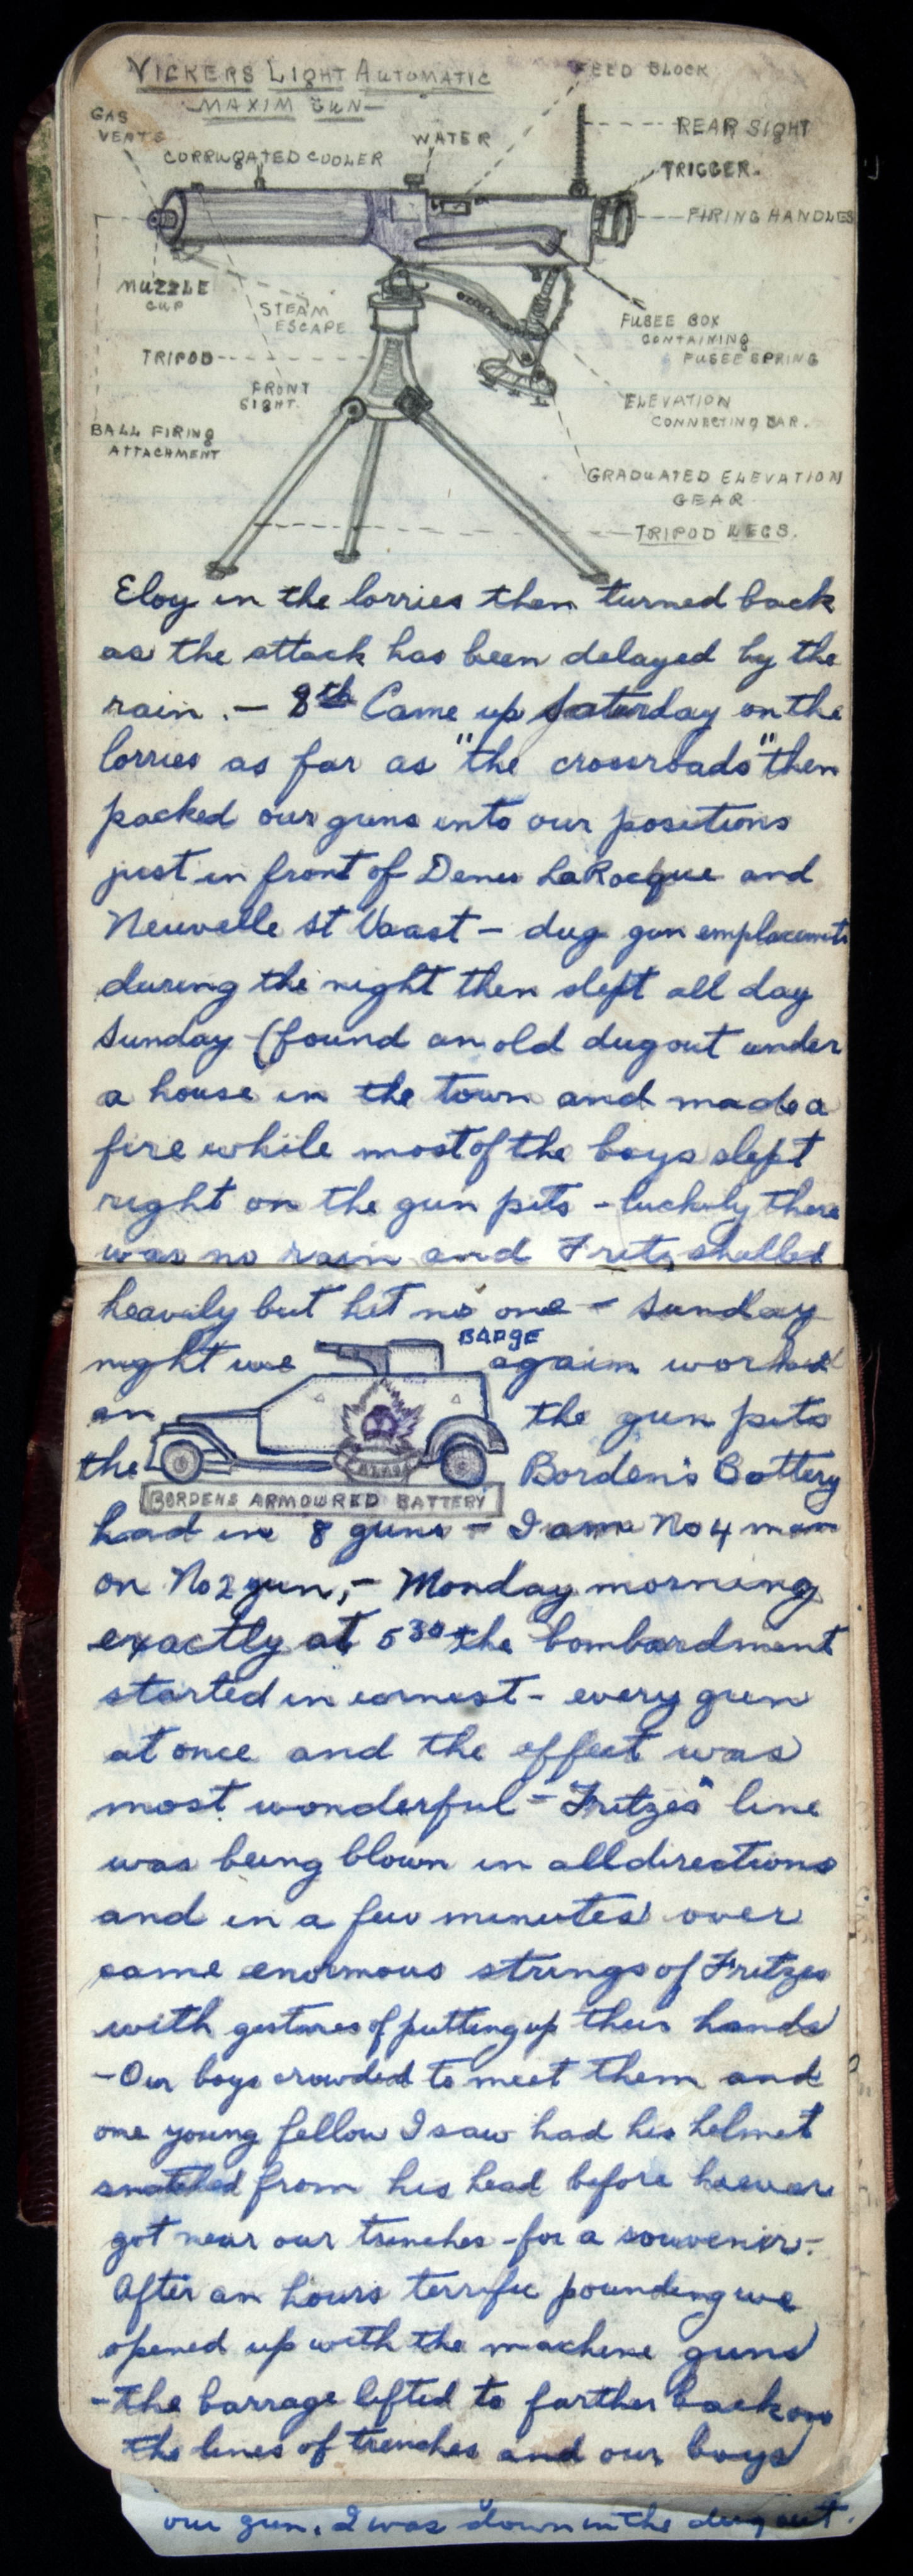 VICKERS LIGHT AUTOMATIC
MAXIM GUN—
FEED BLOCK
GAS
VENTS
CORRUGATED COOLER
WATER
REAR SIGHT
TRIGGER.
FIRING HANDLES
MUZZLE
CUP
STEAM
ESCAPE
FUSEE BOX
CONTAINING
FUSEE SPRING
TRIPOD
FRONT
SIGHT.
ELEVATION
CONNECTING BAR.
BALL FIRING
ATTACHMENT
GRADUATED ELEVATION
GEAR
TRIPOD LEGS.
Eloy in the lorries then turned back
as the attack has been delayed by the
rain. — 8th Came up Saturday on the
lorries as far as "the crossroads" then
packed our guns into our positions
just in front of Denis LaRocque and
Neuvelle St Vaast — dug gun emplacements
during the night then slept all day
Sunday (found an old dugout under
a house in the town and made a
fire while most of the boys slept
right on the gun pits - luckily there
was no rain and Fritz shelled
heavily but hit no one - Sunday
night we BADGE again worked
on the gun pits
the Borden's Battery
BORDENS ARMOURED BATTERY
had in 8 guns - I am No 4 man
on No 2 gun, - Monday morning
exactly at 5 30 the bombardment
started in earnest - every gun
at once and the effect was
most wonderful - Fritzes" line
was being blown in all directions
and in a few minutes over
came enormous strings of Fritzes
with gestures of putting up their hands
- Our boys crowded to meet them and
one young fellow I saw had his helmet
snatched from his head before he ever
got near our trenches - for a souvenir -
After an hours terrific pounding we
opened up with the machine guns
- the barrage lifted to farther back on
the lines of trenches and our boys
our gun. I was down in the dug out.